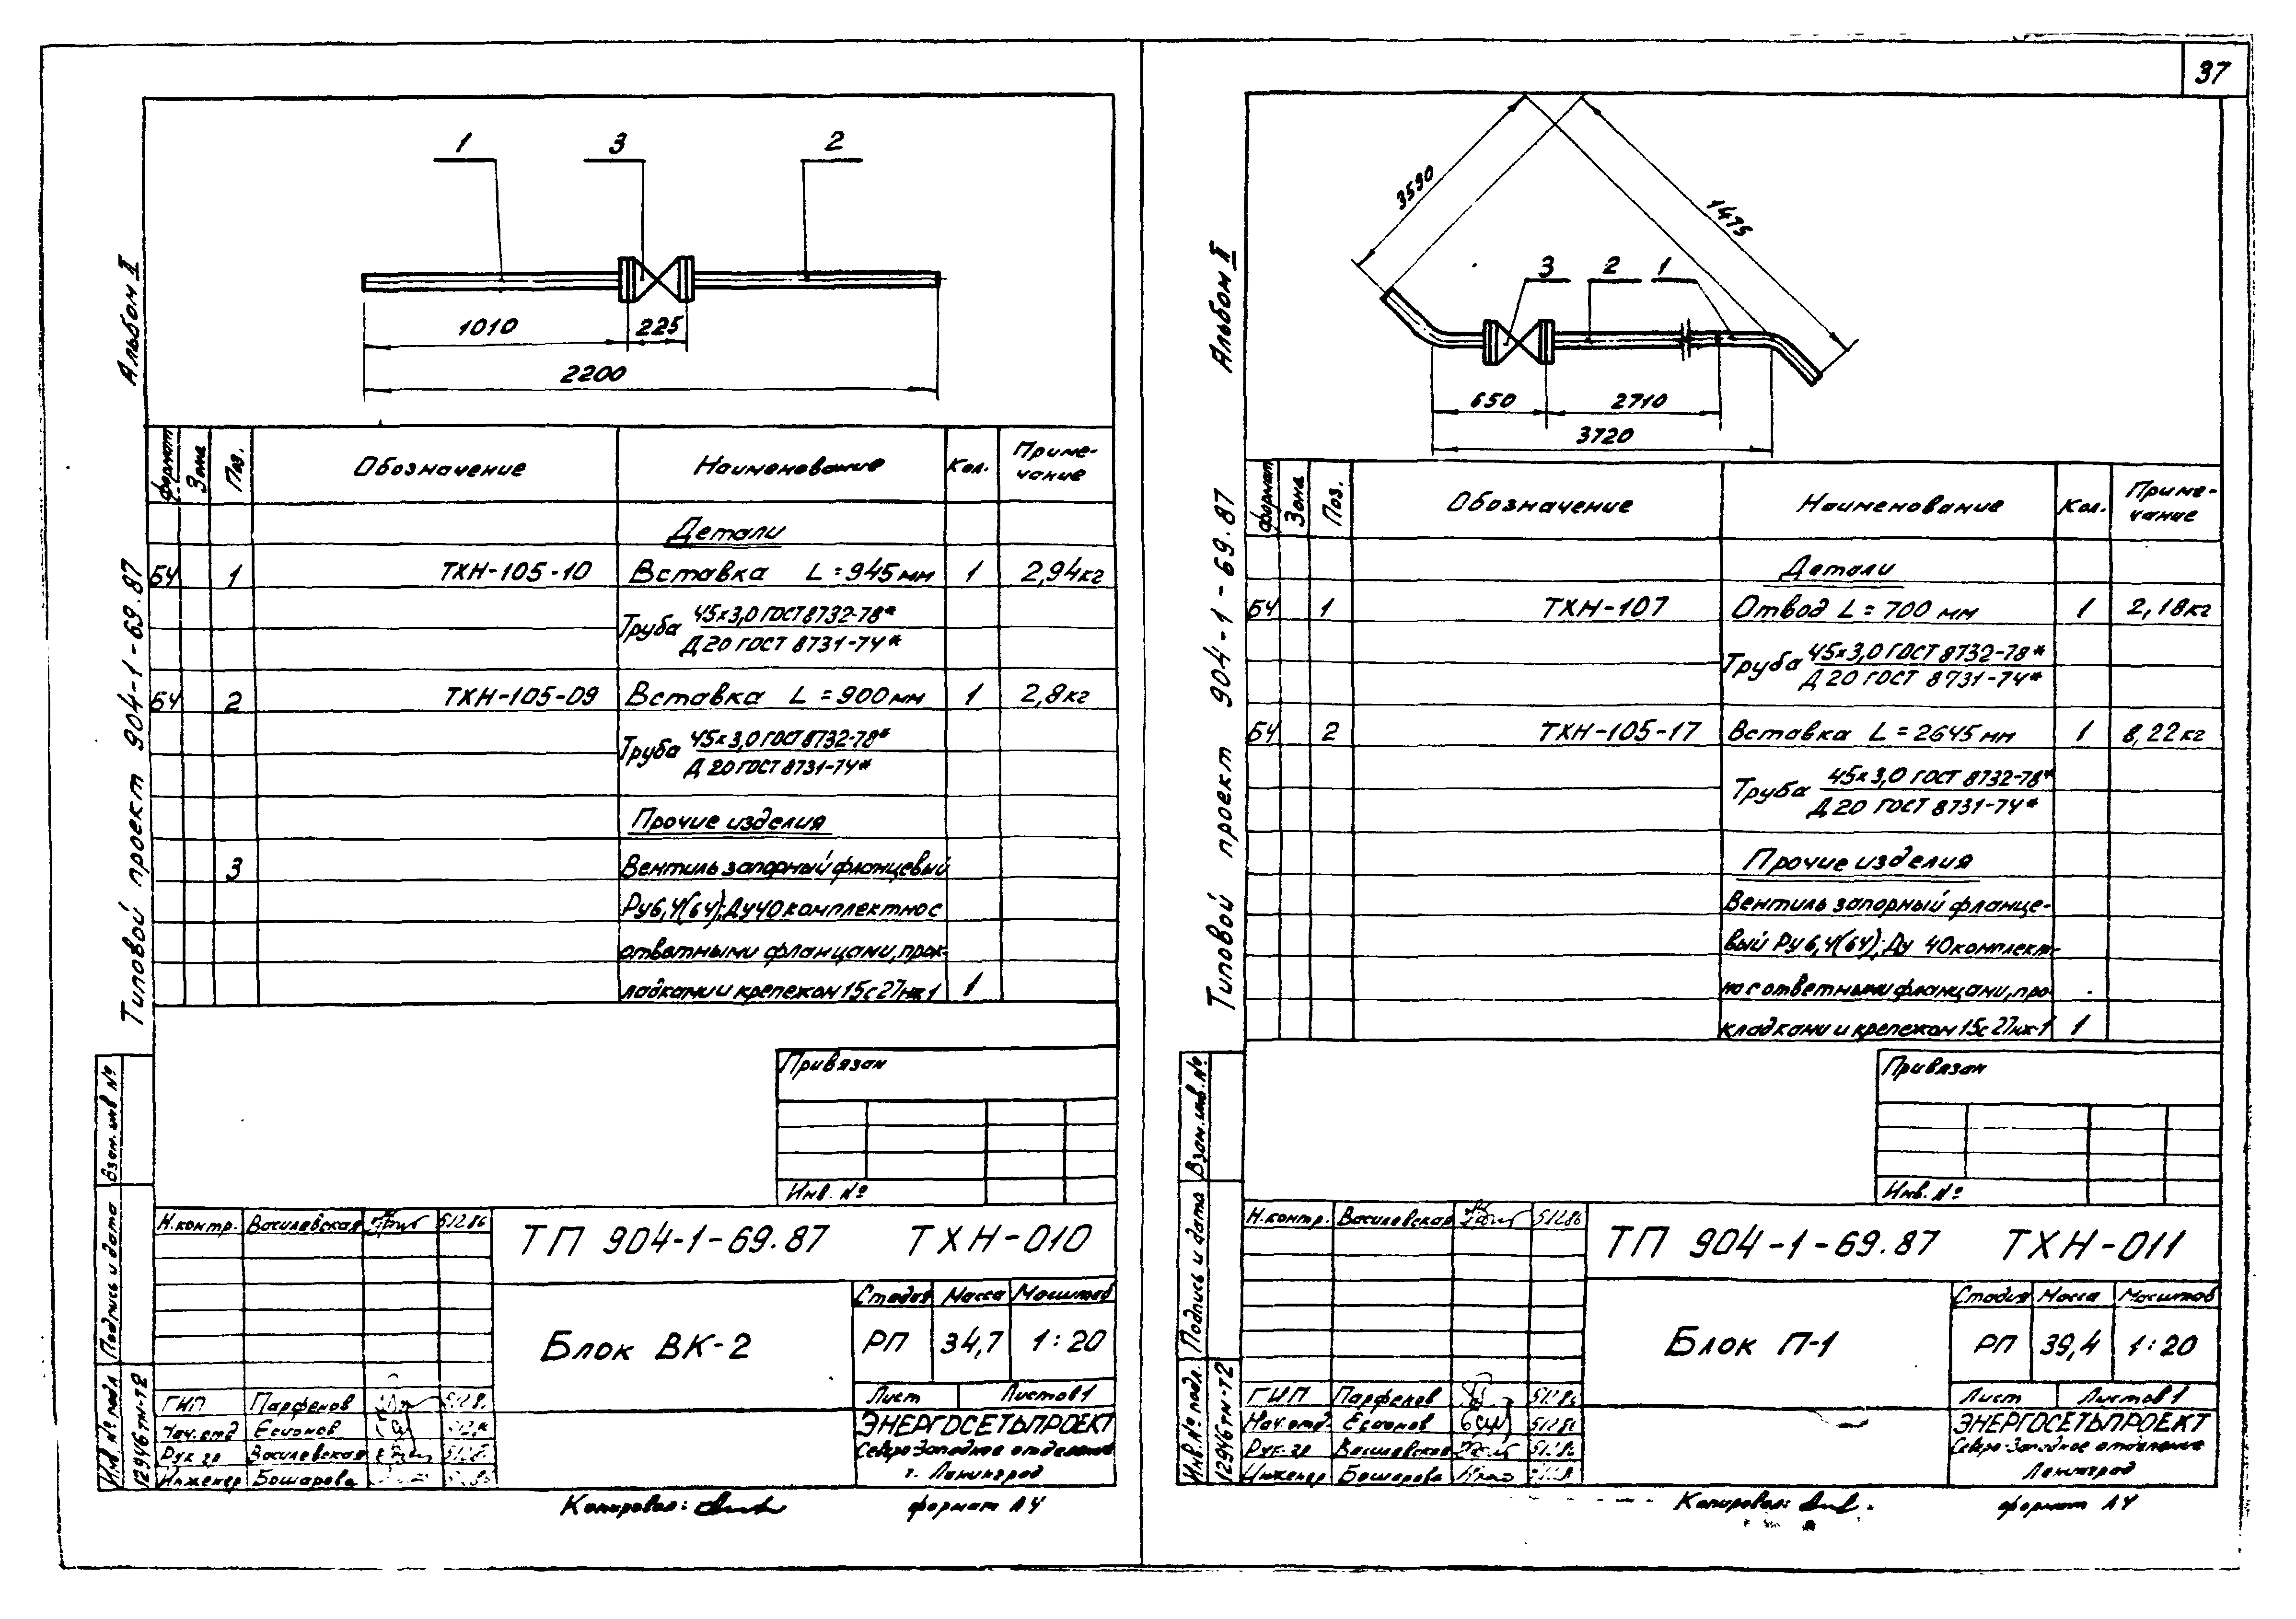 37
Альбом II
Типовой проект 904-1-69.87
1 3 2
1010
225
2200
Формат Зона Поз. Обозначение Наименование Кол. Приме-
чание
Детали
БЧ 1 ТХН-105-10 Вставка L=945мм 1 2,94кг
Труба 45х3,0 ГОСТ 8732-78*
Д20 ГОСТ 8731-74*
БЧ 2 ТХН-105-09 Вставка L=900мм 1 2,8кг
Труба 45х3,0 ГОСТ 8732-78*
Д 20 ГОСТ 8731-74*
Прочие изделия
3 Вентиль запорный фланцевый
Ру6,4(64); Ду40 комплектно с
ответными фланцами, прок-
ладками и крепежом 15с27нж1 1
Привязан
Инв. №
Взам. инв №
Подпись и дата
Инв № подл
12946тм-т2
Н.контр. Василевская 51286
ТП 904-1-69.87 ТХН-010
Стадия Масса Масштаб
Блок ВК-2
РП 34,7 1:20
Лист Листов 1
ГИП Парфенов
Нач.отд Есионов
Рук гр Василевская
Инженер Бошарова
ЭНЕРГОСЕТЬПРОЕКТ
Северо-Западное отделение
г. Ленинград
Копировал:
формат А4
Альбом II
Типовой проект 904-1-69.87
3590
1475
3 2 1
650
2710
3720
Формат Зона Поз. Обозначение Наименование Кол. Приме-
чание
Детали
БЧ 1 ТХН-107 Отвод L=700 мм 1 2,18кг
Труба 45х3,0 ГОСТ 8732-78*
Д 20 ГОСТ 8731-74*
БЧ 2 ТХН-105-17 Вставка L=2645мм 1 8,22кг
Труба 45х3,0 ГОСТ 8732-78*
Д20 ГОСТ 8731-74*
Прочие изделия
Вентиль запорный фланце-
вый Ру6,4(64); Ду 40 комплект-
но с ответными фланцами, про-
кладками и крепежом 15с27нж1 1
Привязан
Инв. №
Взам.инв.№
Подпись и дата
Инв.№ подл.
12946тм-т2
Н.контр. Василевская 51286
ТП 904-1-69.87 ТХН-011
Стадия Масса Масштаб
Блок П-1
РП 39,4 1:20
Лист Листов 1
ГИП Парфенов 51286
Нач.отд. Есионов 51286
Рук.гр Василевская 51286
Инженер Бошарова
ЭНЕРГОСЕТЬПРОЕКТ
Северо-Западное отделение
Ленинград
Копировал:
формат А4